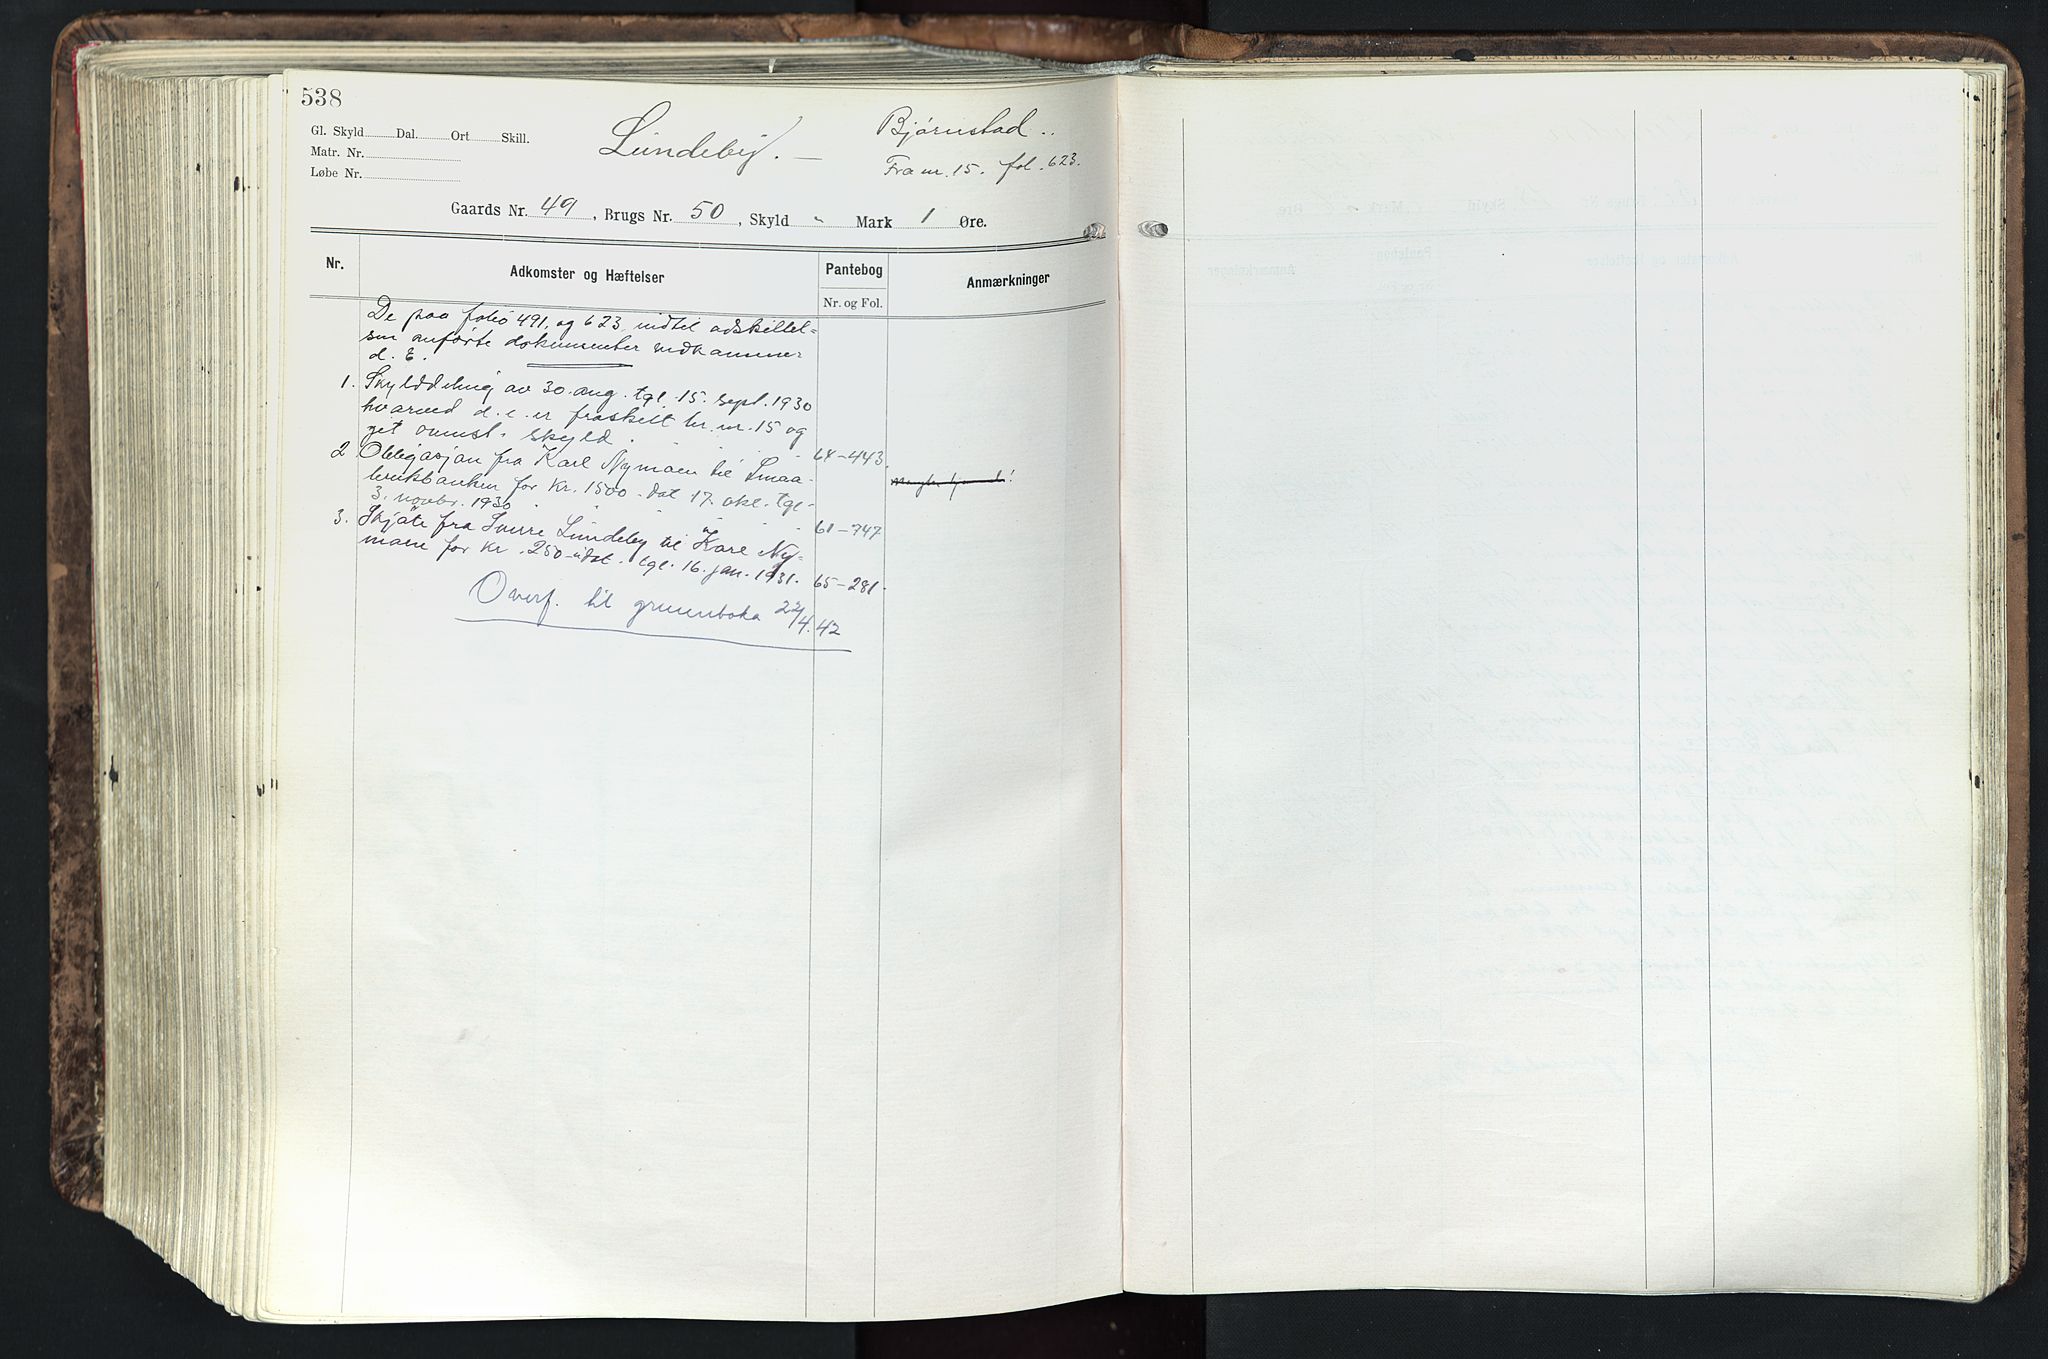 538
Gl. Skyld Dal. Ort Skill.
Matr. Nr.
Løbe Nr.
Lundeby. —
Bjørnstad..
Fra nr. 15. fol. 623.
Gaards Nr. 49, Brugs Nr. 50, Skyld " Mark 1 Øre.
Nr. Adkomster og Hæftelser Pantebog Anmærkninger
Nr. og Fol.
De paa folio 491, og 623, indtil adskillel-
sen anførte dokumenter vedkommer
d. E.
1. Skylddeling av 30. aug. tgl. 15. sept. 1930
hvorved d. e. er fraskilt br. nr. 15 og
git ovenst. skyld. 64-443.
2 Obligasjon fra Karl Nymoen til Smaa-
brukbanken for kr. 1500 - dat 17. okt. tgl.
3. novbr. 1930 61-747
3. Skjøte fra Sverre Lundeby til Karl Ny-
moen for kr. 250 - udat. tgl. 16. jan. 1931. 65-281.
Overf. til grunnboka 22/4.42